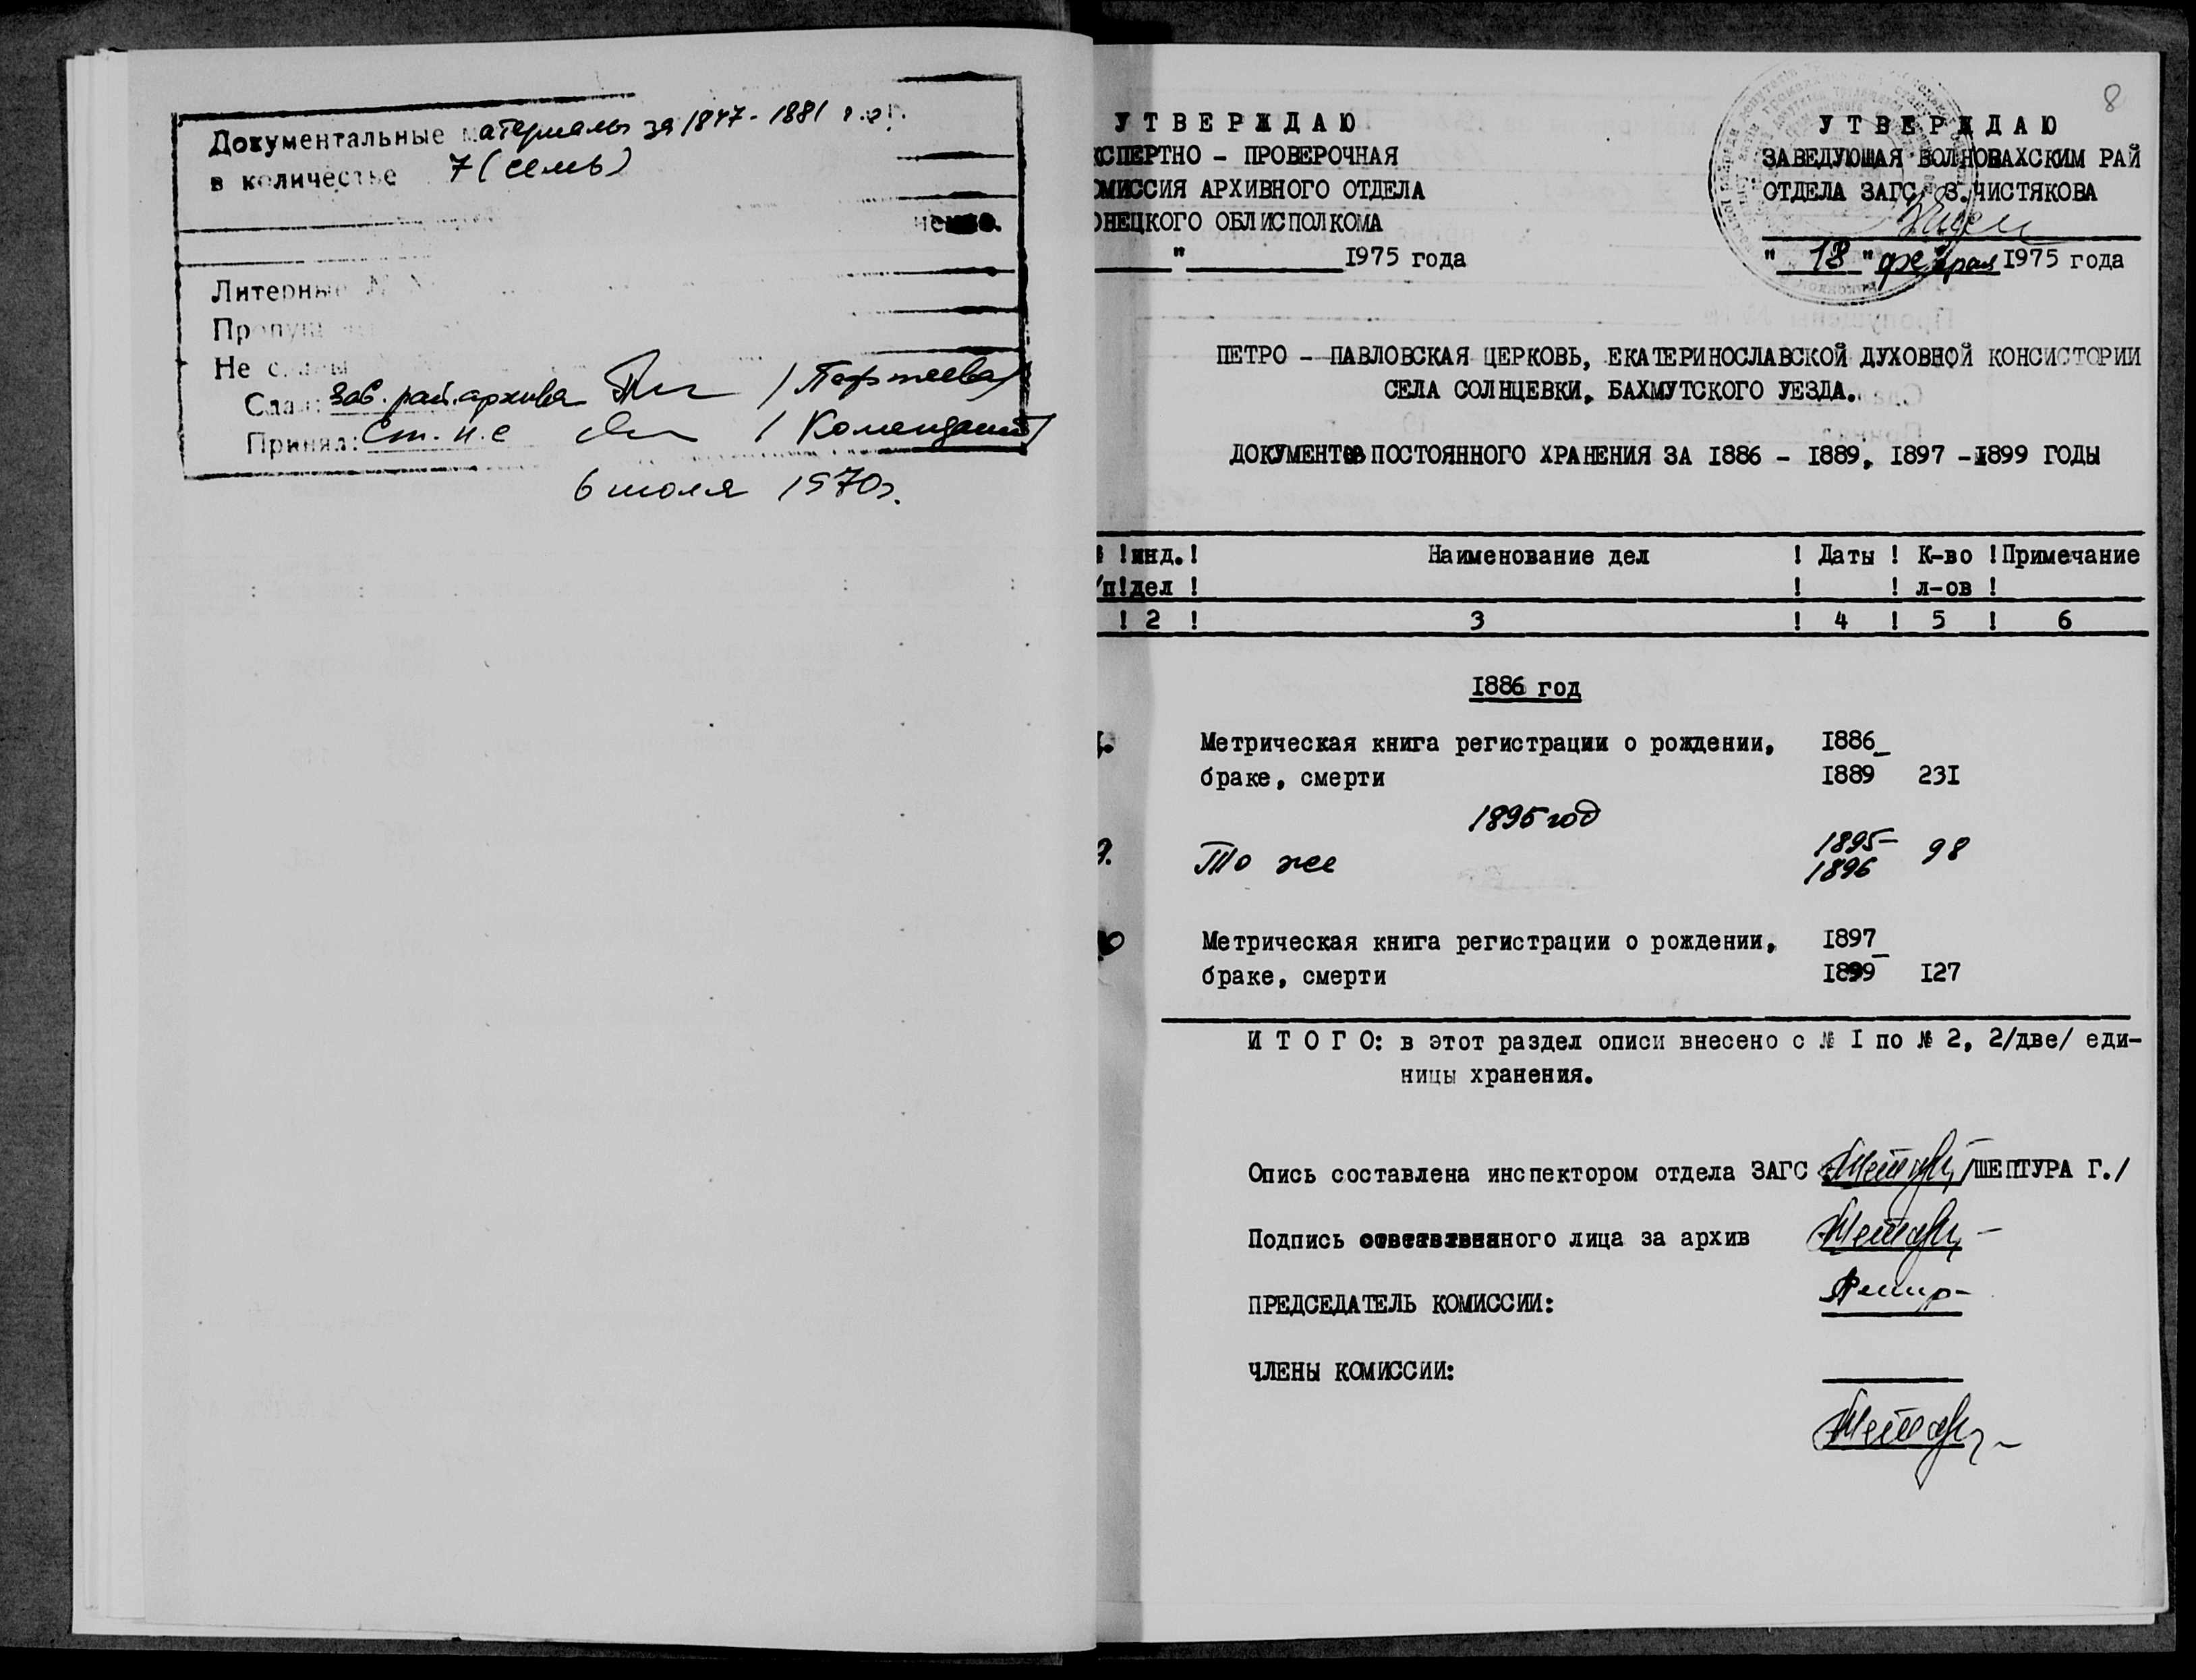 Документальные материалы за 1847-1881 г.г.
в количестве 7 (семь)
Литерные №
Не сданы
Сдал: Зав. рай. архива
Принял: Ст. н.с
6 июля 1970г.
8
УТВЕРЖДАЮ
КСПЕРТНО - ПРОВЕРОЧНАЯ
ОМИССИЯ АРХИВНОГО ОТДЕЛА
ОНЕЦКОГО ОБЛИСПОЛКОМА
" 1975 года
УТВЕРЖДАЮ
ЗАВЕДУЮЩАЯ ВОЛНОВАХСКИМ РАЙ
ОТДЕЛА ЗАГС, З.ЧИСТЯКОВА
" 18 " февраля 1975 года
ПЕТРО - ПАВЛОВСКАЯ ЦЕРКОВЬ, ЕКАТЕРИНОСЛАВСКОЙ ДУХОВНОЙ КОНСИСТОРИИ
СЕЛА СОЛНЦЕВКИ, БАХМУТСКОГО УЕЗДА.
ДОКУМЕНТОВ ПОСТОЯННОГО ХРАНЕНИЯ ЗА 1886 - 1889, 1897 -1899 ГОДЫ
№ !инд.! Наименование дел ! Даты ! К-во !Примечание
/п!дел ! ! ! л-ов !
! 2 ! 3 ! 4 ! 5 ! 6
1886 год
1. Метрическая книга регистрации о рождении, 1886_
браке, смерти 1889 231
1895 год
2. То же 1895- 98
1896
Метрическая книга регистрации о рождении, 1897_
браке, смерти 1899 127
И Т О Г О: в этот раздел описи внесено с № 1 по № 2, 2/две/ еди-
ницы хранения.
Опись составлена инспектором отдела ЗАГС /ШЕПТУРА Г./
Подпись ответственного лица за архив
ПРЕДСЕДАТЕЛЬ КОМИССИИ:
ЧЛЕНЫ КОМИССИИ: